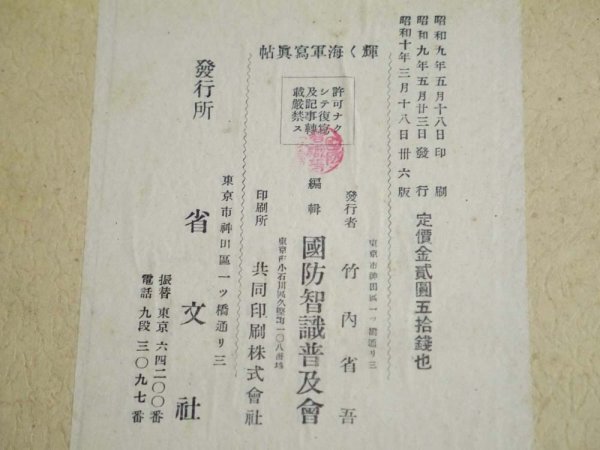 昭和九年五月十八日印刷
昭和九年五月廿三日發行
昭和十年三月十八日卅六版
定價金貳圓五拾錢也
輝く海軍寫眞帖
許可ナク
シテ復寫
及記事轉
載嚴禁ス
東京市神田區一ツ橋通リ三
發行者 竹内省吾
編輯 國防智識普及會
東京市小石川區久堅町一〇八番地
印刷所 共同印刷株式會社
東京市神田區一ツ橋通リ三
發行所 省文社
振替東京六四二〇〇番
電話九段三〇九七番